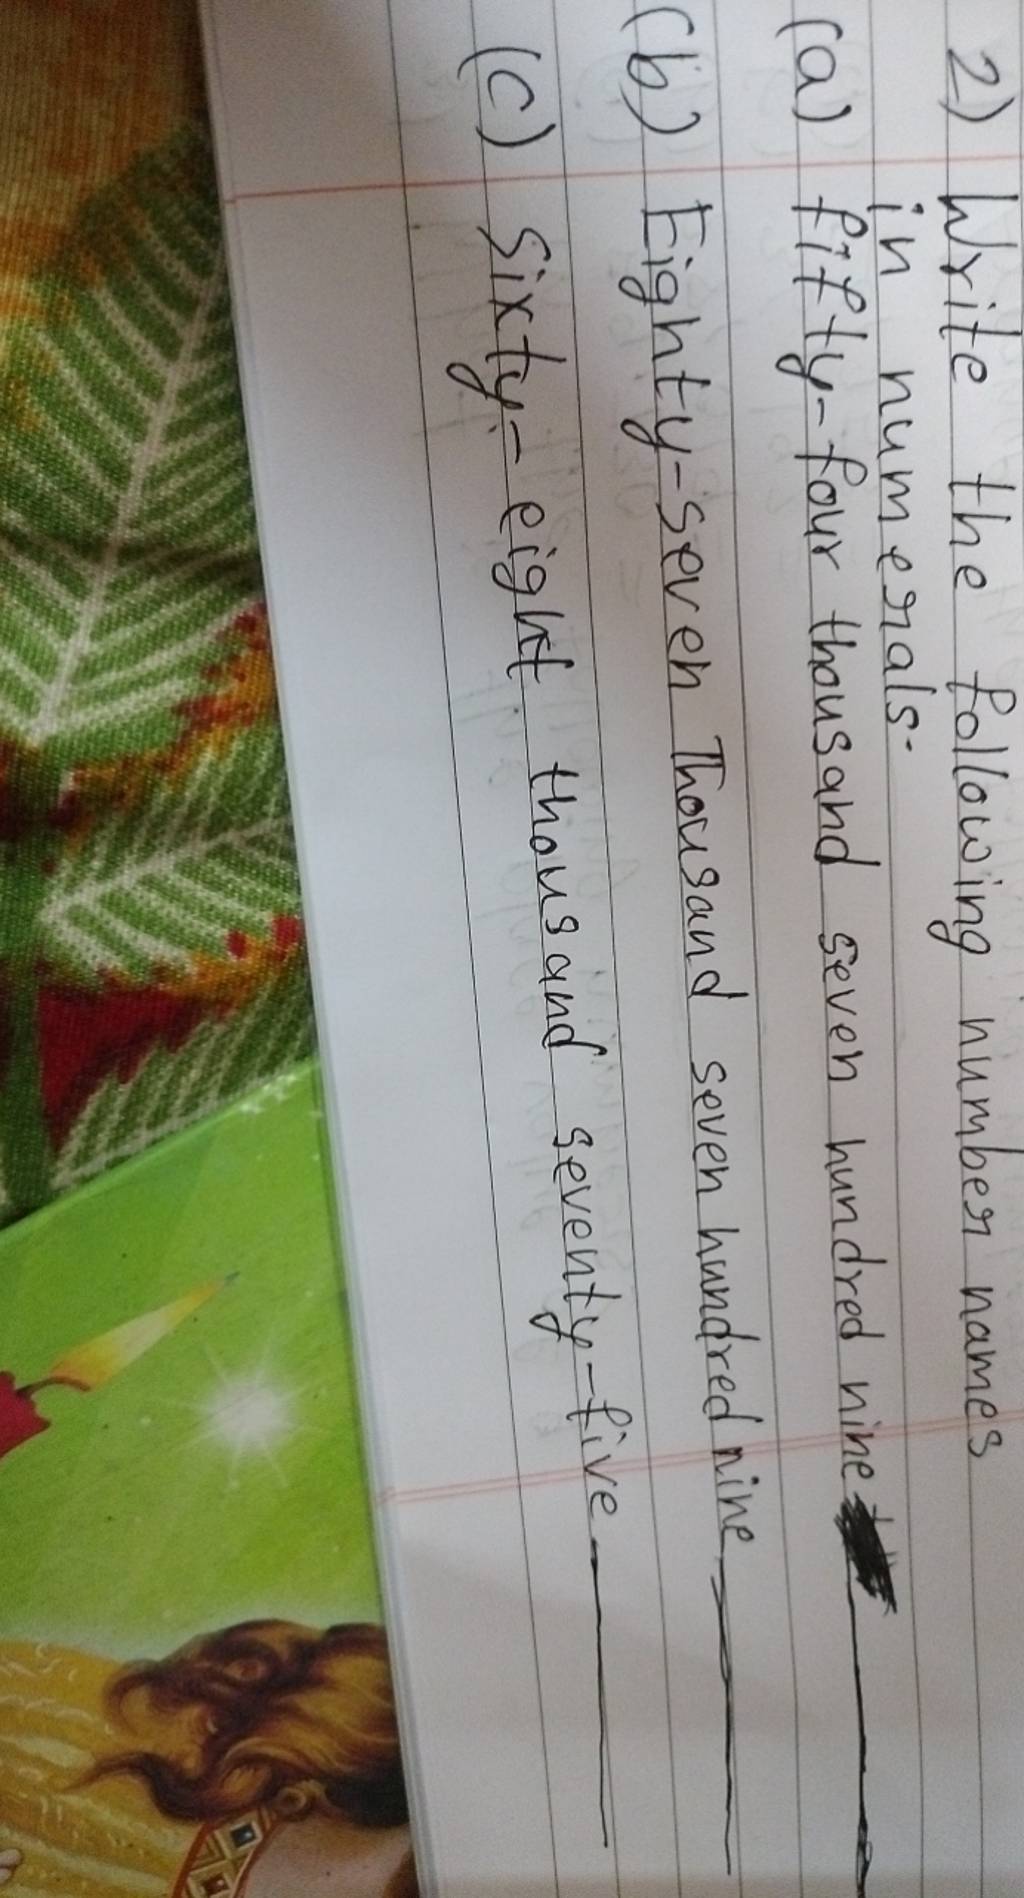 2) Write the following number names
in numerals.
(a) fifty-four thousand seven hundred nine
(b) Eighty-seven Thousand seven hundred nine
(c) Sixty-eight thousand seventy-five